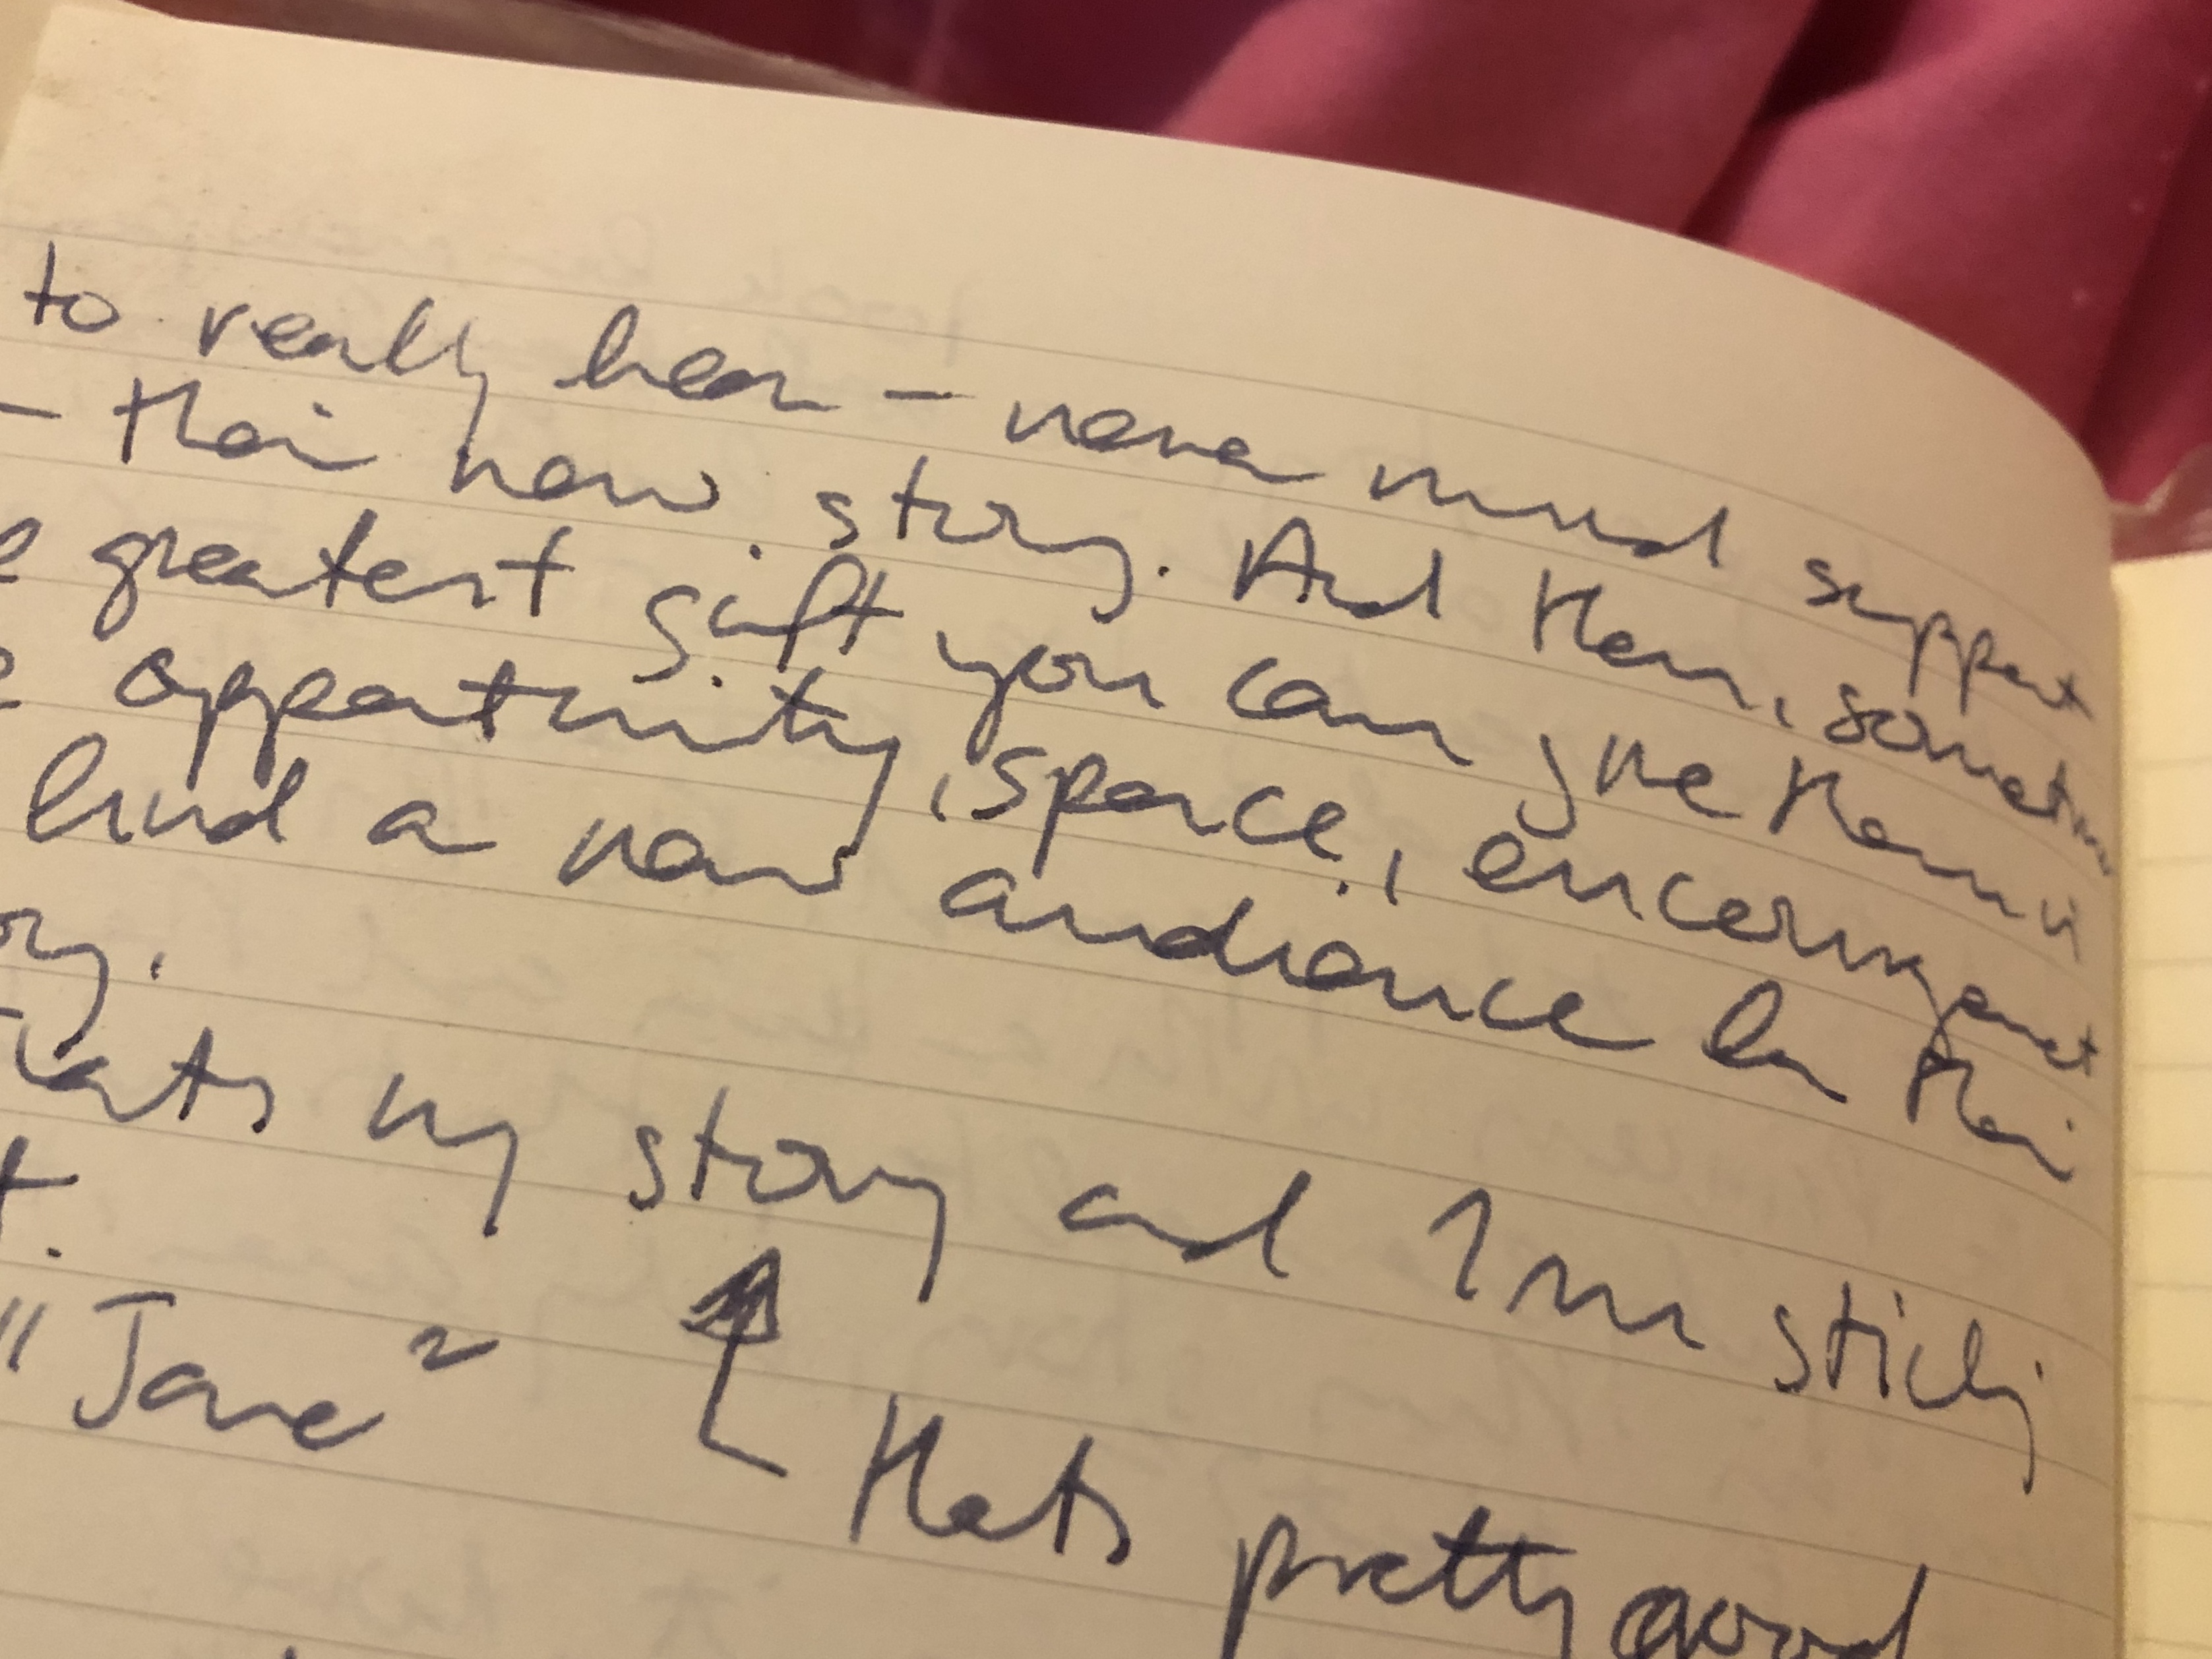 to really hear - never mind support
- their new story. And then, sometimes
greatest gift you can give them is
opportunity, space, encouragement
find a new audience for their
ory.
hats my story and I'm sticking
t.
"Jane" thats pretty good